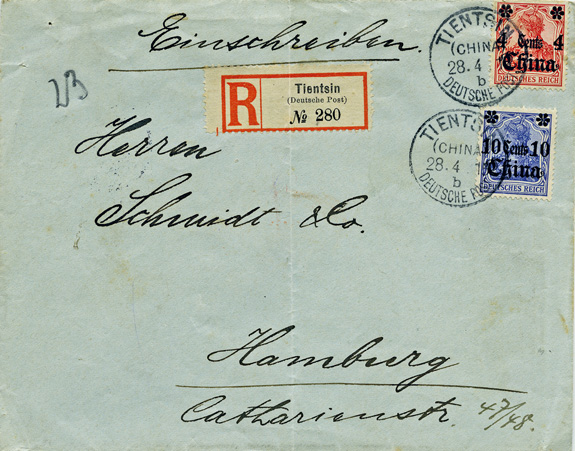 Einschreiben.
TIENTSIN
(CHINA)
28.4
b
DEUTSCHE PO
4 Cents 4
China
DEUTSCHES REICH
R
Tientsin
(Deutsche Post)
№ 280
TIENTS
(CHINA
28.4
b
DEUTSCHE PO
10 Cents 10
China
DEUTSCHES REICH
Herren
Schmidt & Co.
Hamburg
Catharienstr. 47/48.